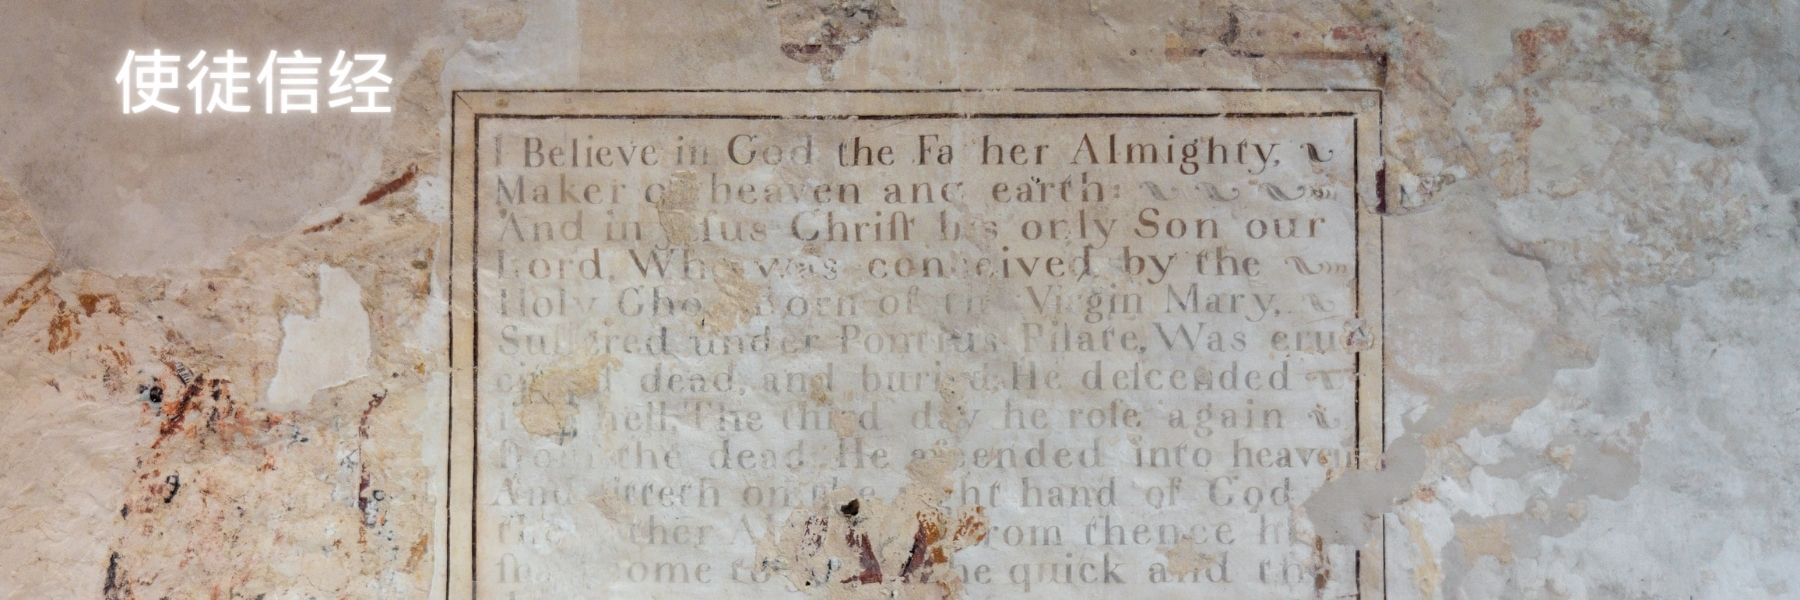 使徒信经
I Believe in God the Fa her Almighty,
Maker of heaven and earth:
And in Jesus Chriſt his only Son our
Lord, Who was conceived by the
Holy Ghoſt Born of the Virgin Mary,
Suffered under Pontius Pilate, Was cru
cified dead, and buried, He deſcended
hell, The third day he roſe again
from the dead He aſcended into heaven
And ſitteth on the right hand of God
the ther Al rom thence h
ſhall come to he quick and th